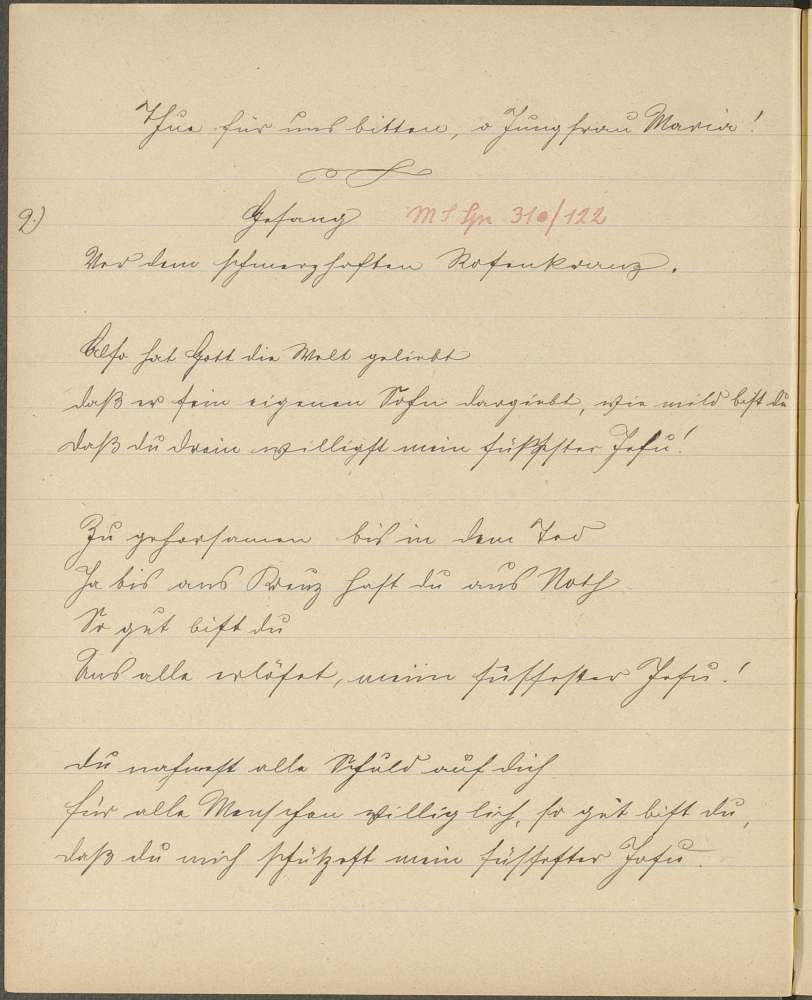 Thue für uns bitten, o Jungfrau Maria!
9.) Gesang MS Gr 310/122
Vor dem schmerzhaften Rosenkranz.
Also hat Gott die Welt geliebt
daß er sein eigenen Sohn dargiebt, wie mild bist du
daß du drein willigst mein süßester Jesu!
Zu gehorsamen bis in dem Tod
Ja bis ans Kreuz hast du aus Noth
So gut bist du
Uns alle erlöset, mein süssester Jesu!
du nahmest alle Schuld auf dich
für alle Menschen williglich, so gut bist du,
daß du mich schützest mein süssester Jesu.